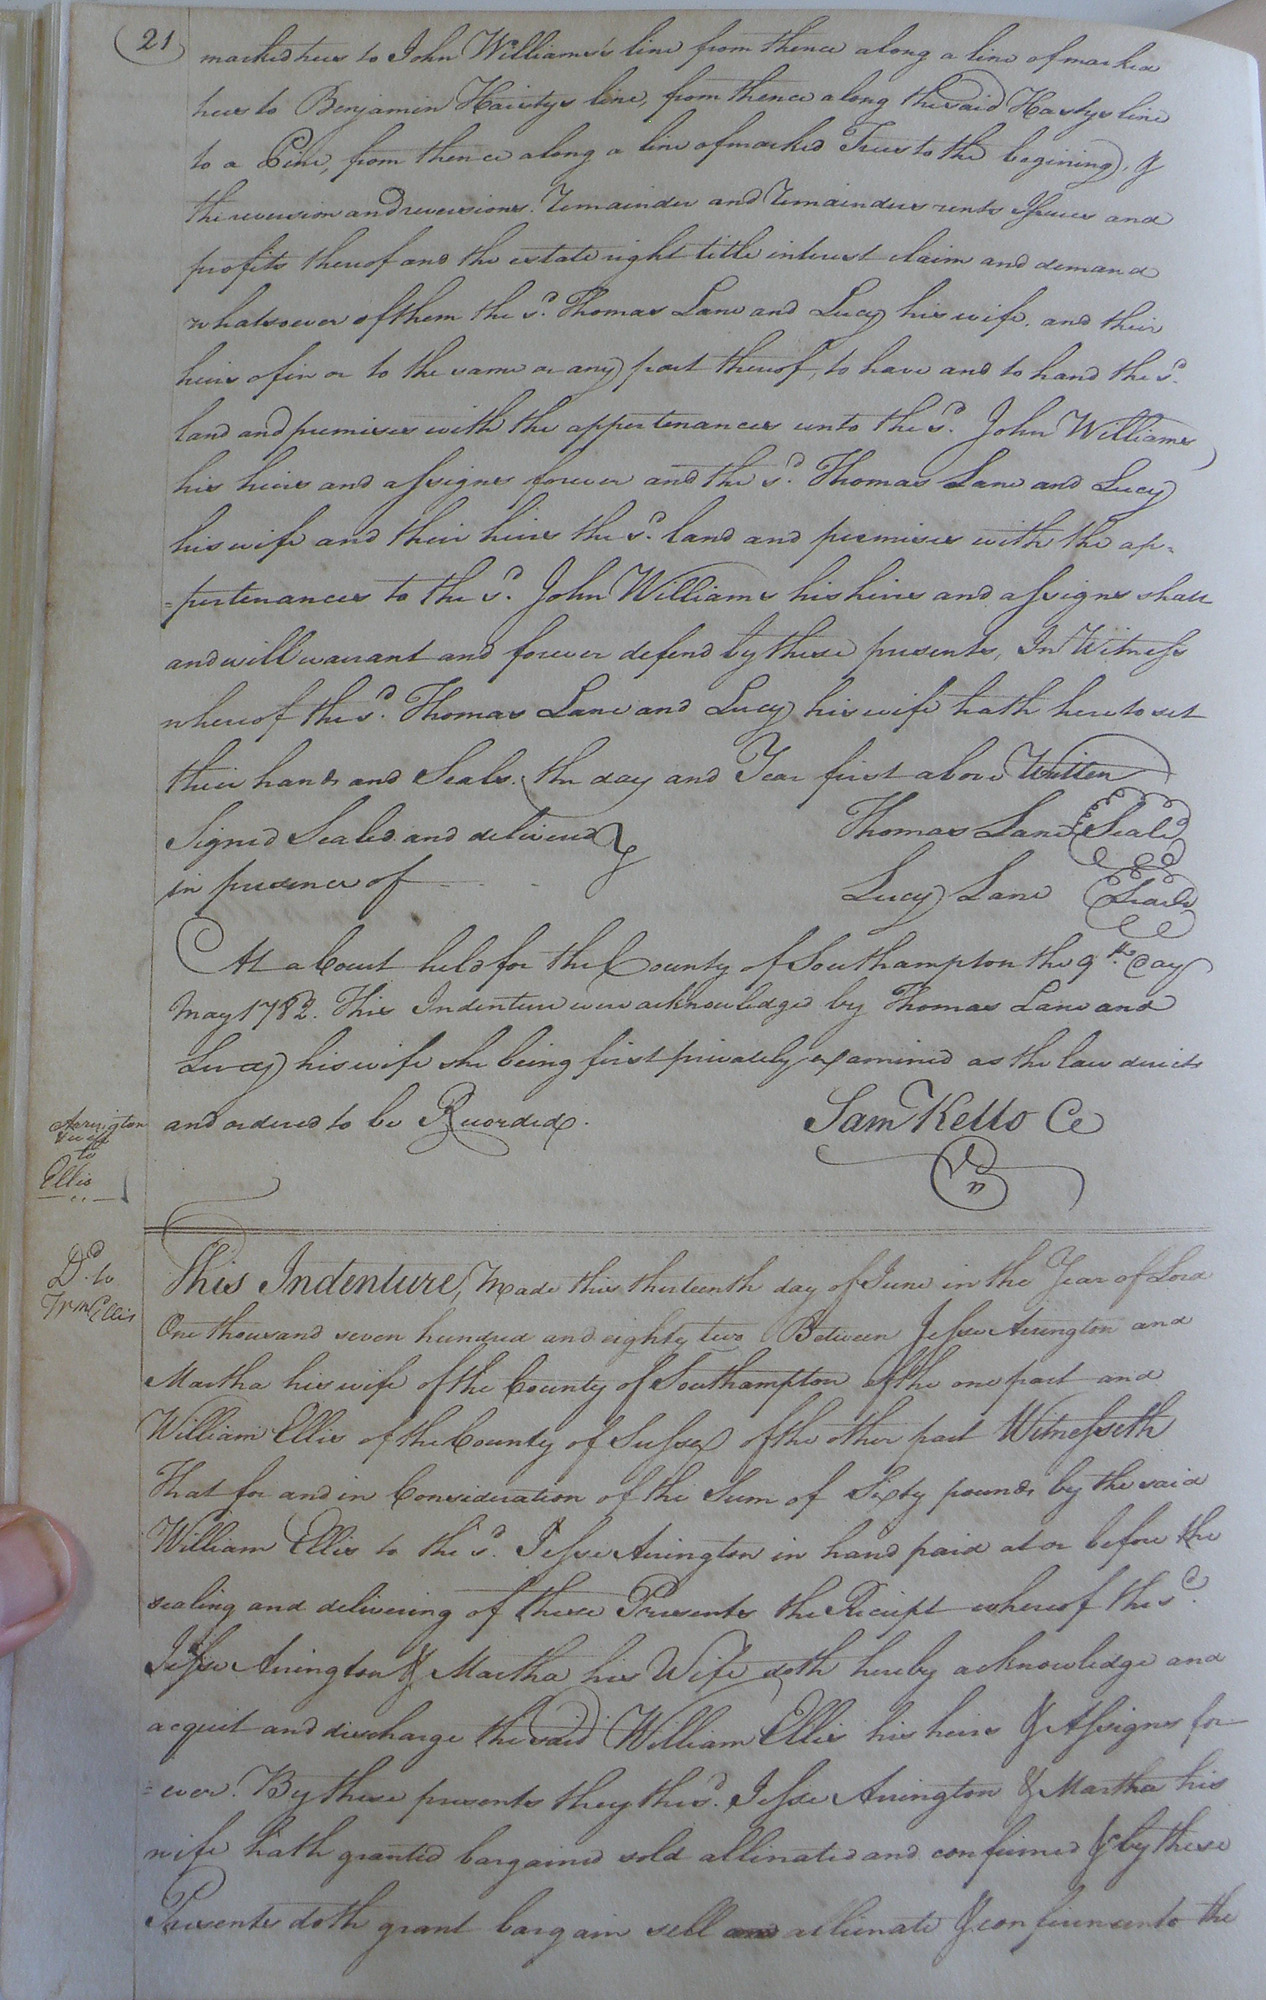 21
marked trees to John Williams's line from thence along a line of marked
trees to Benjamin Haistys line, from thence along the said Hastys line
to a Pine, from thence along a line of marked Trees to the begining, &
the reversion and reversions. Remainder and Remainders rents Issues and
profits thereof and the estate right title interest claim and demand
whatsoever of them the sd. Thomas Lane and Lucy his wife. and their
heirs of in or to the same or any part thereof, to have and to hand the sd.
land and premises with the appertenances unto the sd. John Williams
his heirs and assignes forever and the sd. Thomas Lane and Lucy
his wife and their heirs the sd. land and premises with the ap=
=pertenances to the sd. John Williams his heirs and assigns shall
and will warrant and forever defend by these presents, In Witness
whereof the sd. Thomas Lane and Lucy his wife hath hereto set
their hands and Seals. the day and Year first above Written
Signed Sealed and delivered Thomas Lane Seald
in presence of Lucy Lane Seald
At a Court held for the County of Southampton the 9th. Day
May 1782. This Indenture were acknowledge by Thomas Lane and
Lucy his wife she being first privately examined as the law directs
and ordered to be Recorded.
Sam Kello Cc
Arrington
to
Ellis
Dd. to
Wm Ellis
This Indenture, Made this thirteenth day of June in the Year of Lord
One thousand seven hundred and eighty two Between Jesse Arrington and
Martha his wife of the County of Southampton of the one part and
William Ellis of the County of Sussex of the other part Witnesseth
That for and in Consideration of the Sum of Sixty pounds by the said
William Ellis to the sd. Jesse Arrington in hand paid at or before the
sealing and delivering of these Presents the Reciept whereof the sd.
Jesse Arrington & Martha his Wife doth hereby acknowledge and
acquit and discharge the said William Ellis his heirs & Assignes for
=ever. By these presents they the sd. Jesse Arrington & Martha his
wife hath granted bargained sold allinated and confirmed & by these
Presents doth grant bargain sell and allienate & confirm unto the